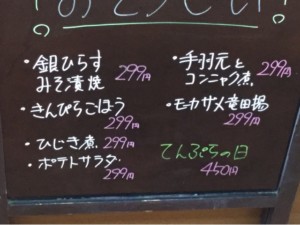 おそうざい!
・銀ひらす
みそ漬焼 299円
・きんぴらごぼう
299円
・ひじき煮 299円
・ポテトサラダ
299円
・手羽元と
コンニャク煮 299円
・モーカサメ竜田揚
299円
てんぷらの日
450円